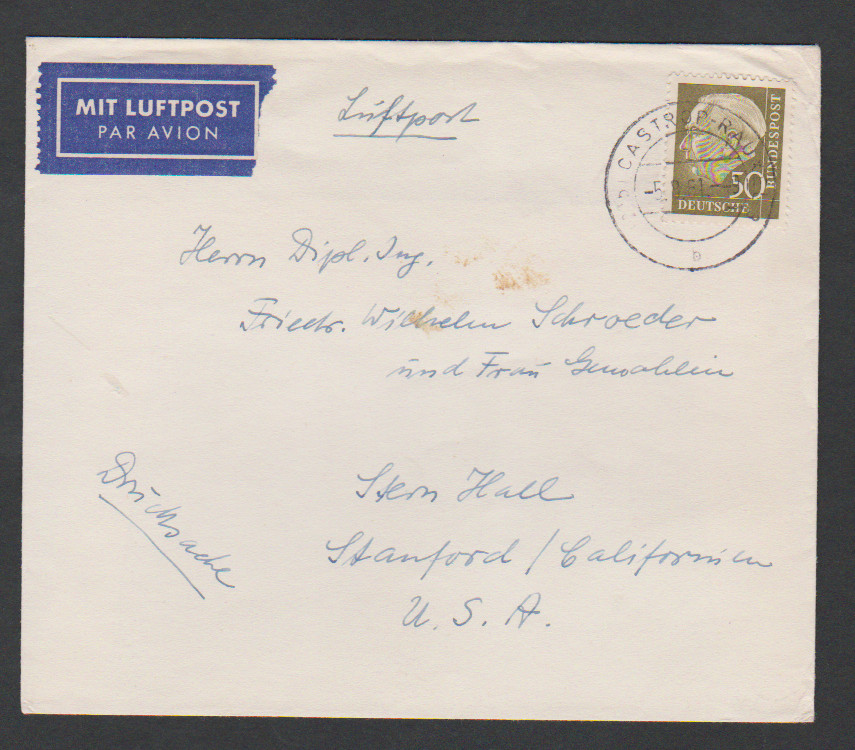 MIT LUFTPOST
PAR AVION
Luftpost
CASTROP-RAU
50
DEUTSCHE
BUNDESPOST
b
Herrn Dipl. Ing.
Friedr. Wilhelm Schroeder
und Frau Gemahlin
Drucksache
Stern Hall
Stanford / Californien
U. S. A.